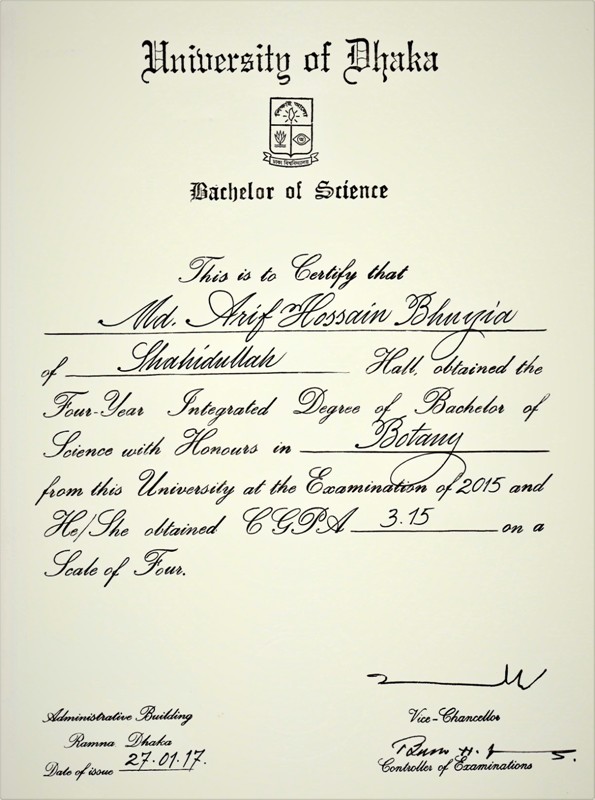 University of Dhaka
শিক্ষাই আলো
ঢাকা বিশ্ববিদ্যালয়
Bachelor of Science
This is to Certify that
Md. Arif Hossain Bhuyia
of Shahidullah Hall, obtained the
Four-Year Integrated Degree of Bachelor of
Science with Honours in Botany
from this University at the Examination of 2015 and
He/She obtained CGPA 3.15 on a
Scale of Four.
Administrative Building
Ramna Dhaka
Date of issue 27.01.17.
Vice-Chancellor
Controller of Examinations